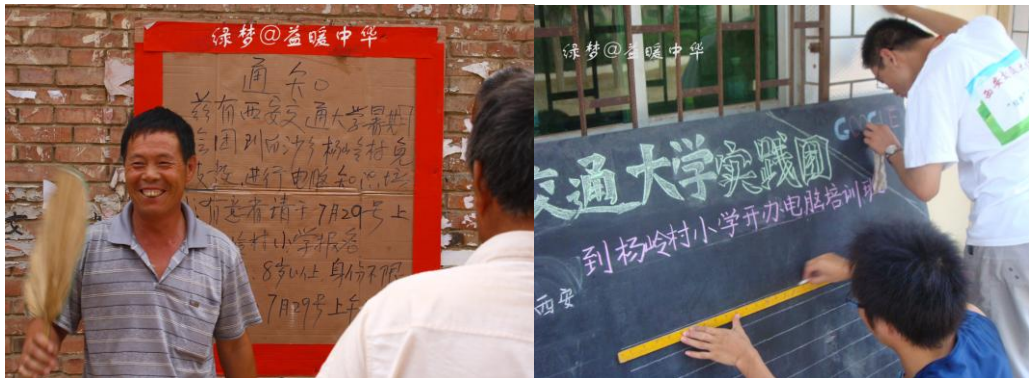 绿梦@益暖中华
通知
兹有西安交通大学暑期
团到白沙乡杨岭村免
进行电脑知识培
有意者请于7月29号上
岭村小学报名
8岁以上,身份不限
7月29号上午
绿梦@益暖中华
GOOGLE
交通大学实践团
到杨岭村小学开办电脑培训班
西安